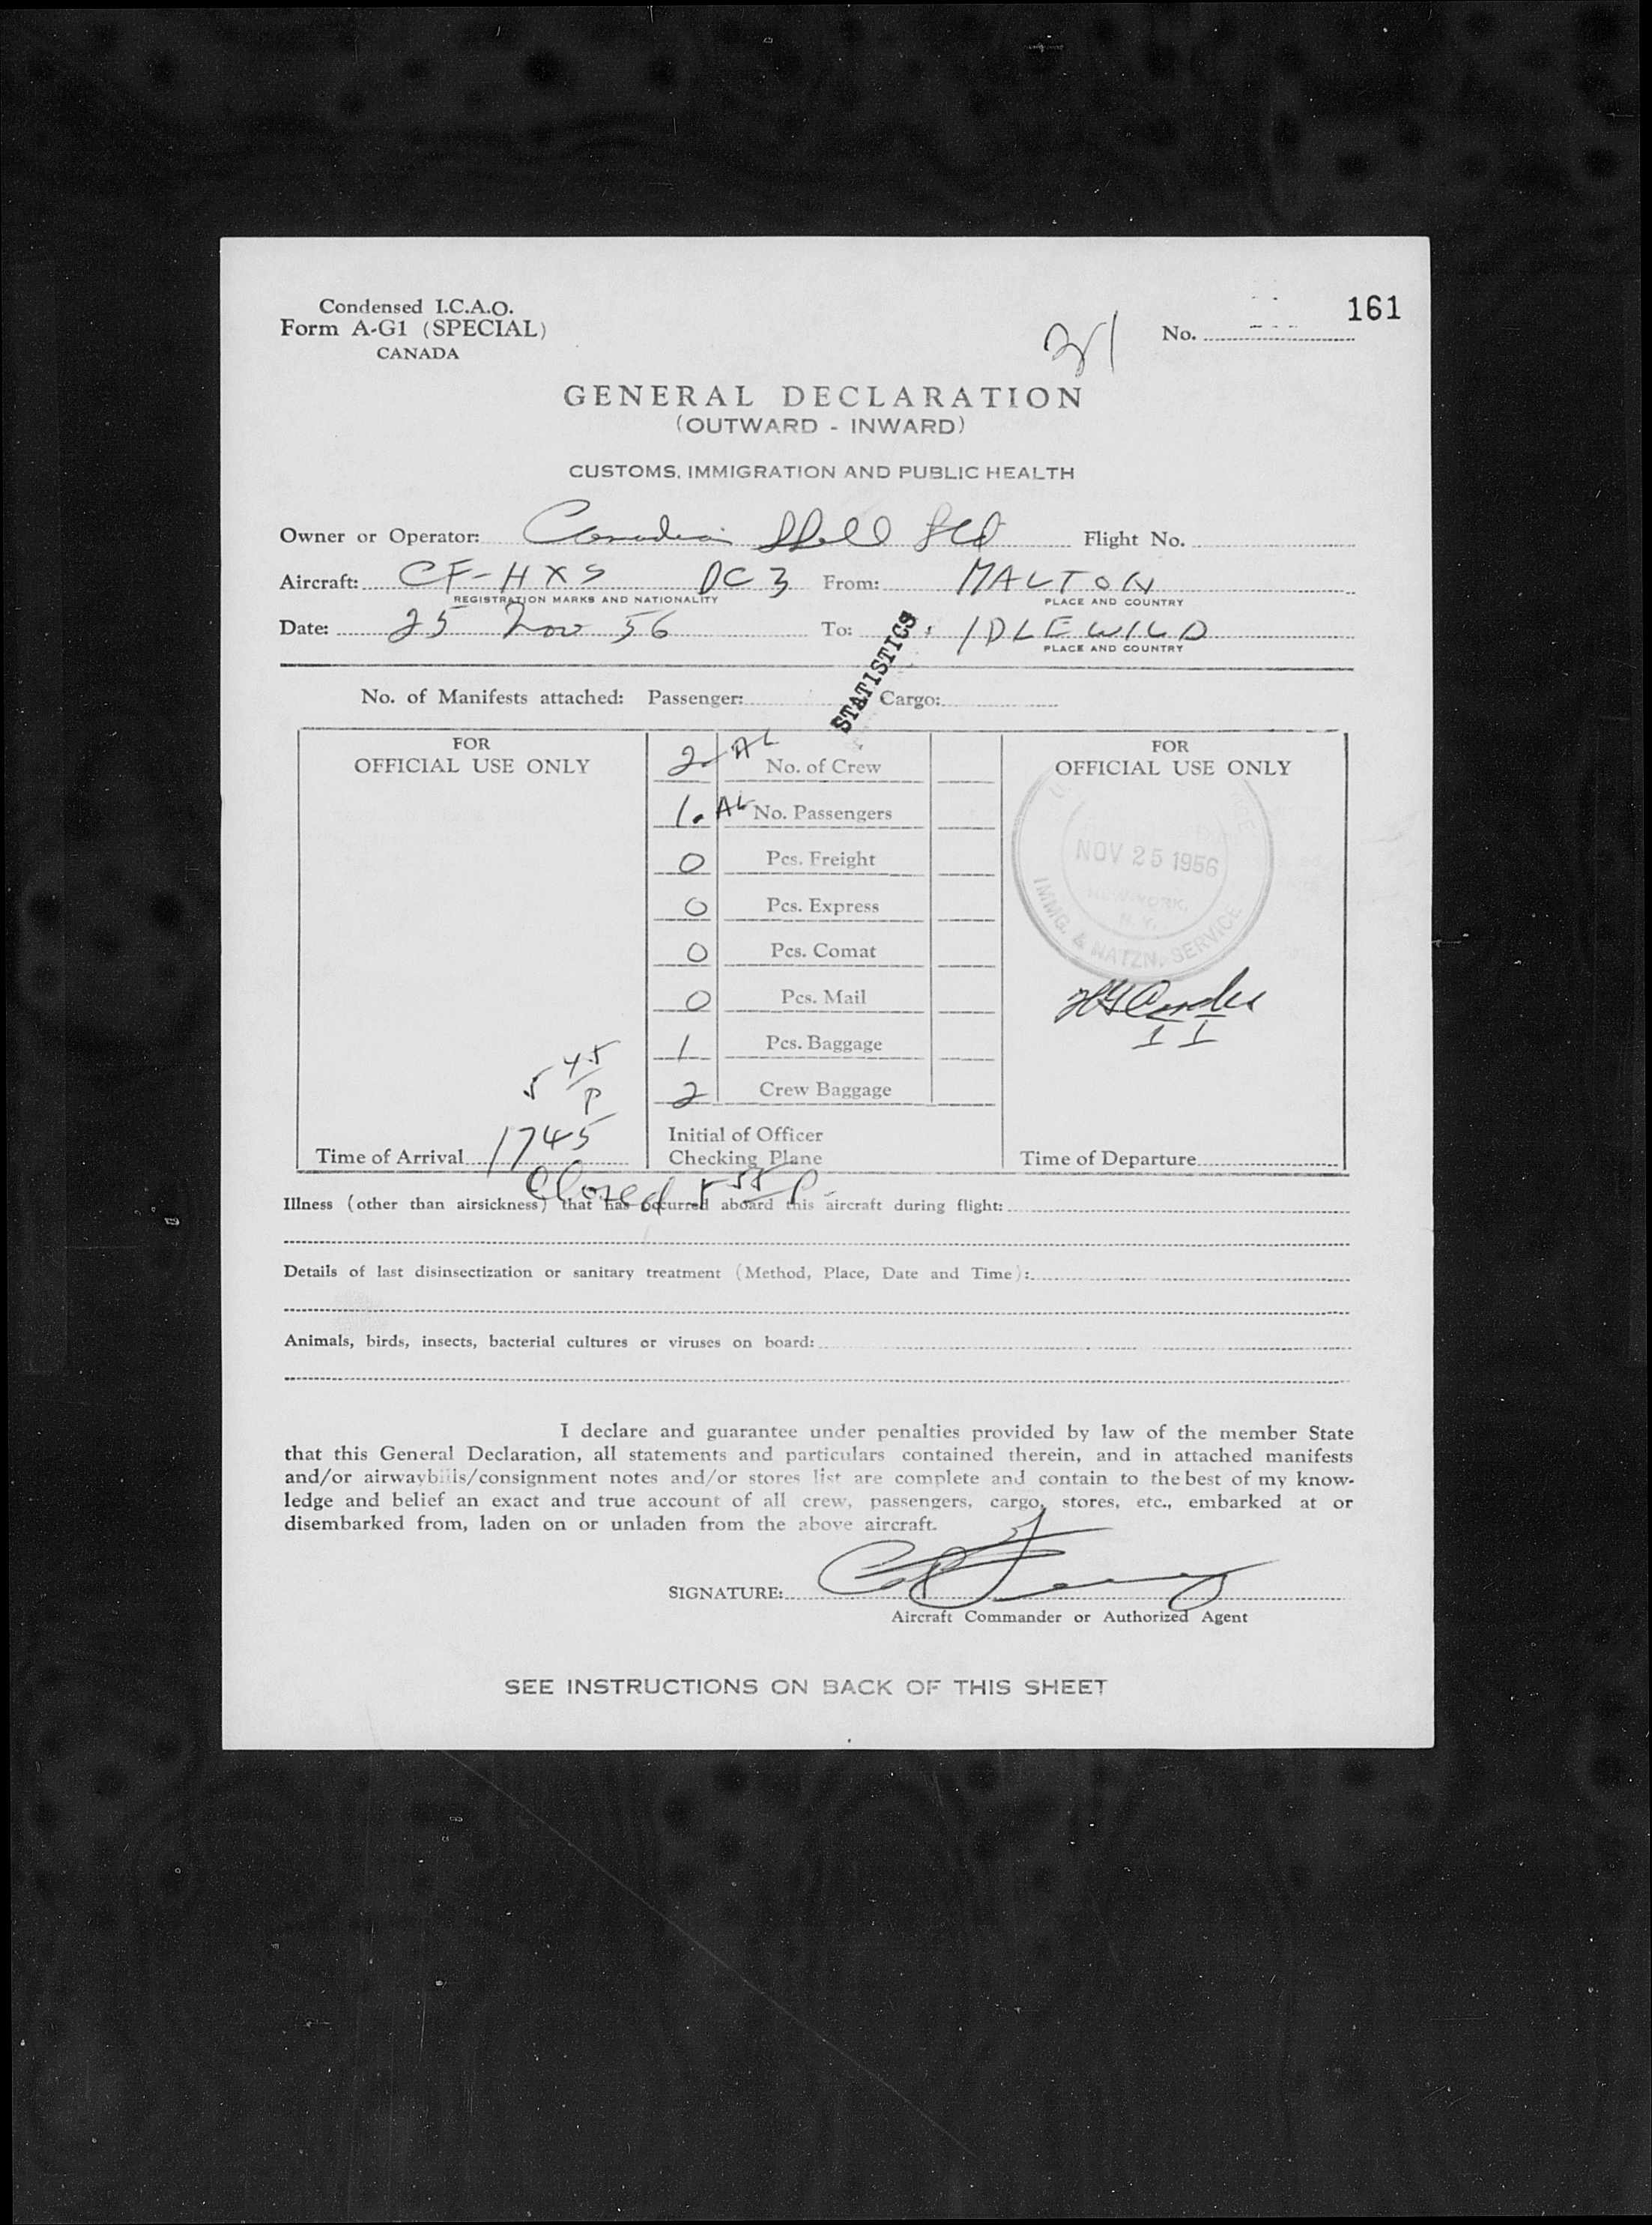 161
Condensed I.C.A.O.
Form A-G1 (SPECIAL)
CANADA
No.
GENERAL DECLARATION
(OUTWARD - INWARD)
CUSTOMS, IMMIGRATION AND PUBLIC HEALTH
Owner or Operator: Canadian Shell Ltd Flight No.
Aircraft: CF-HXS DC3 From: MALTON
REGISTRATION MARKS AND NATIONALITY PLACE AND COUNTRY
Date: 25 Nov 56 To: IDLEWILD
PLACE AND COUNTRY
STATISTICS
No. of Manifests attached: Passenger: Cargo:
FOR
OFFICIAL USE ONLY
5 45/P
Time of Arrival 1745
2 AL No. of Crew
1. AL No. Passengers
0 Pcs. Freight
0 Pcs. Express
0 Pcs. Comat
0 Pcs. Mail
1 Pcs. Baggage
2 Crew Baggage
Initial of Officer
Checking Plane
FOR
OFFICIAL USE ONLY
NOV 25 1956
NEW YORK,
N.Y.
IMMG. & NATZN. SERVICE
II
Time of Departure
Closed 5 55 P
Illness (other than airsickness) that has occurred aboard this aircraft during flight:
Details of last disinsectization or sanitary treatment (Method, Place, Date and Time):
Animals, birds, insects, bacterial cultures or viruses on board:
I declare and guarantee under penalties provided by law of the member State
that this General Declaration, all statements and particulars contained therein, and in attached manifests
and/or airwaybills/consignment notes and/or stores list are complete and contain to the best of my know-
ledge and belief an exact and true account of all crew, passengers, cargo, stores, etc., embarked at or
disembarked from, laden on or unladen from the above aircraft.
SIGNATURE:
Aircraft Commander or Authorized Agent
SEE INSTRUCTIONS ON BACK OF THIS SHEET